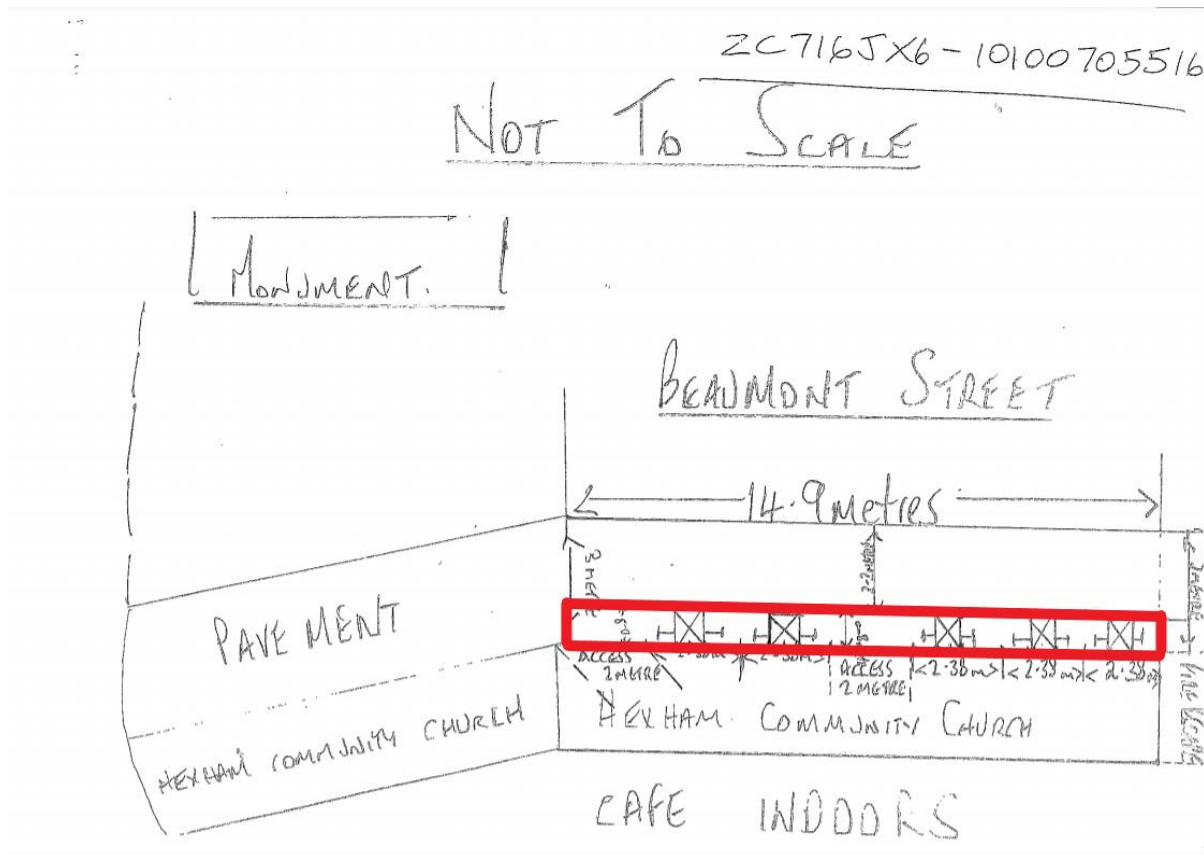 ZC716JX6-10100705516
NOT TO SCALE
MONUMENT.
BEAUMONT STREET
14.9 metres
3 metre
2.2 metre
PAVEMENT
ACCESS
2 METRE
ACCESS
2 METRE
2.38m
2.38m
2.38m
HEXHAM COMMUNITY CHURCH
HEXHAM COMMUNITY CHURCH
CAFE INDOORS